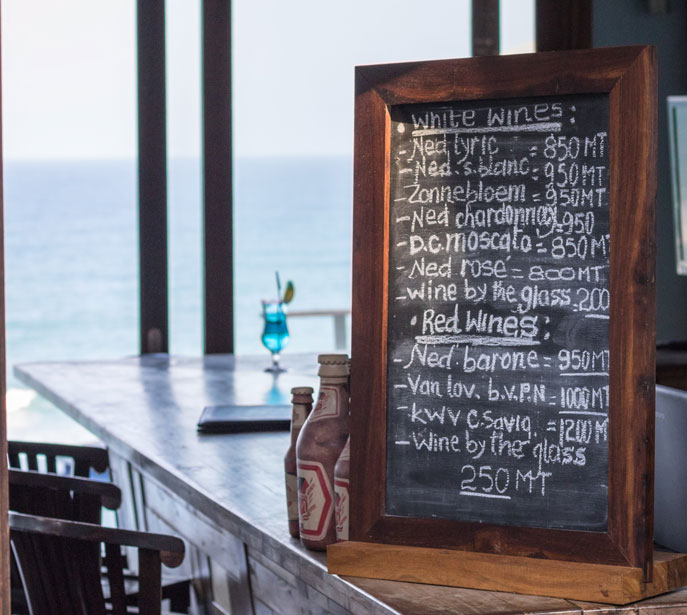 • White Wines:
- Ned lyric = 850 MT
- Ned. s. blanc = 950 MT
- Zonnebloem = 950MT
- Ned chardonnay = 950
- D.C. moscato = 850 MT
- Ned rosé = 800 MT
- Wine by the glass = 200
• Red Wines:
- Ned barone = 950 MT
- Van lov. b.v.P.N = 1000 MT
- KWV C. Savig. = 1200 M
- Wine by the glass
250 MT